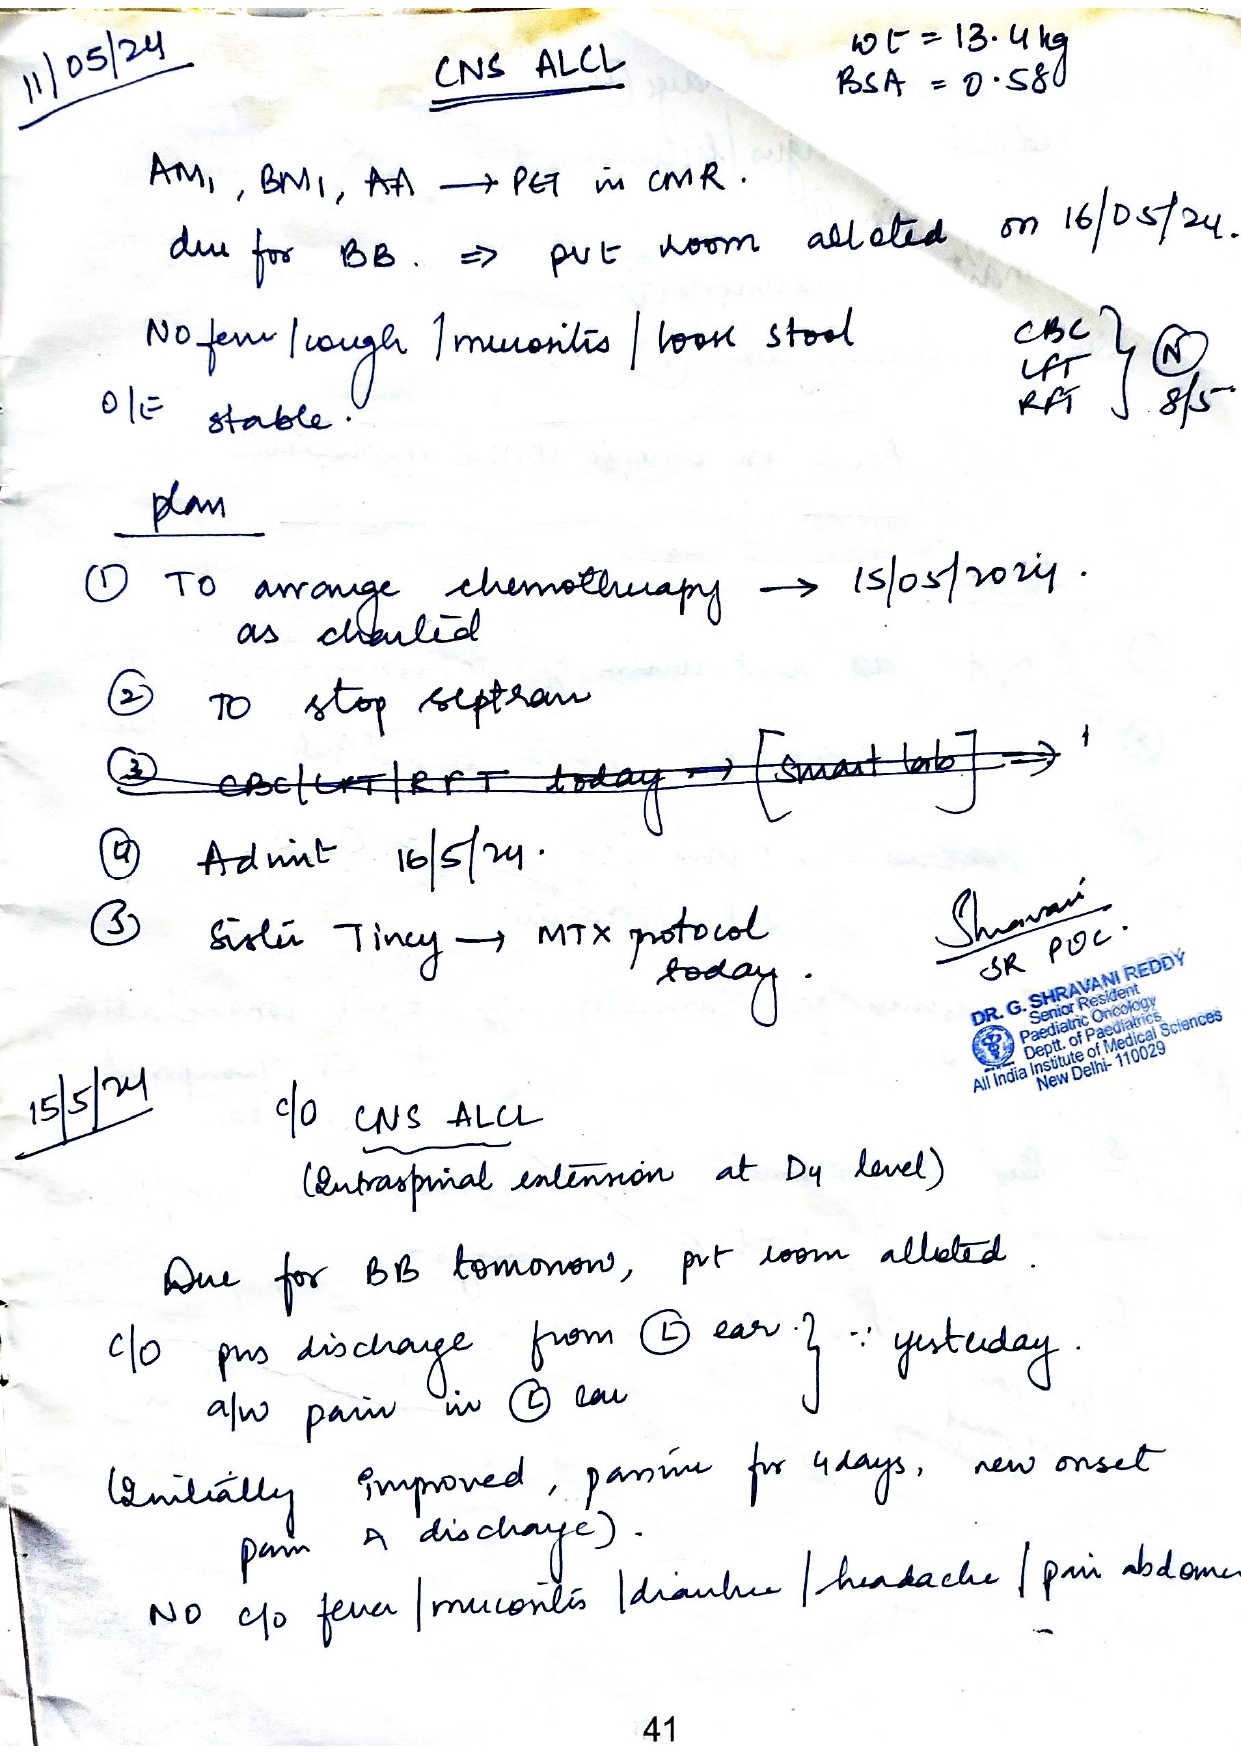 11/05/24
CNS ALCL
wt = 13.4 kg
BSA = 0.58
AM1, BM1, AA → PET in CMR.
due for BB. ⇒ pvt room alloted on 16/05/24.
No fever/cough/mucositis/loose stool
CBC
LFT
RFT
N
8/5
O/E stable.
plan
① To arrange chemotherapy → 15/05/2024.
as charted
② To stop septran
③ CBC/LFT/RFT today → [Smart lab] ⇒
④ Admit 16/5/24.
⑤ Sister Tincy → MTX protocol
today.
Shravani
SR POC.
DR. G. SHRAVANI REDDY
Senior Resident
Paediatric Oncology
Deptt. of Paediatrics
All India Institute of Medical Sciences
New Delhi- 110029
15/5/24
c/o CNS ALCL
(Intraspinal extension at D4 level)
Due for BB tomorrow, pvt room alloted.
c/o pus discharge from Ⓛ ear. } ∵ yesterday.
a/w pain in Ⓛ ear
(Initially improved, for 4 days, new onset
pain discharge).
No c/o fever/mucositis/diarrhea/headache/pain abdomen
41